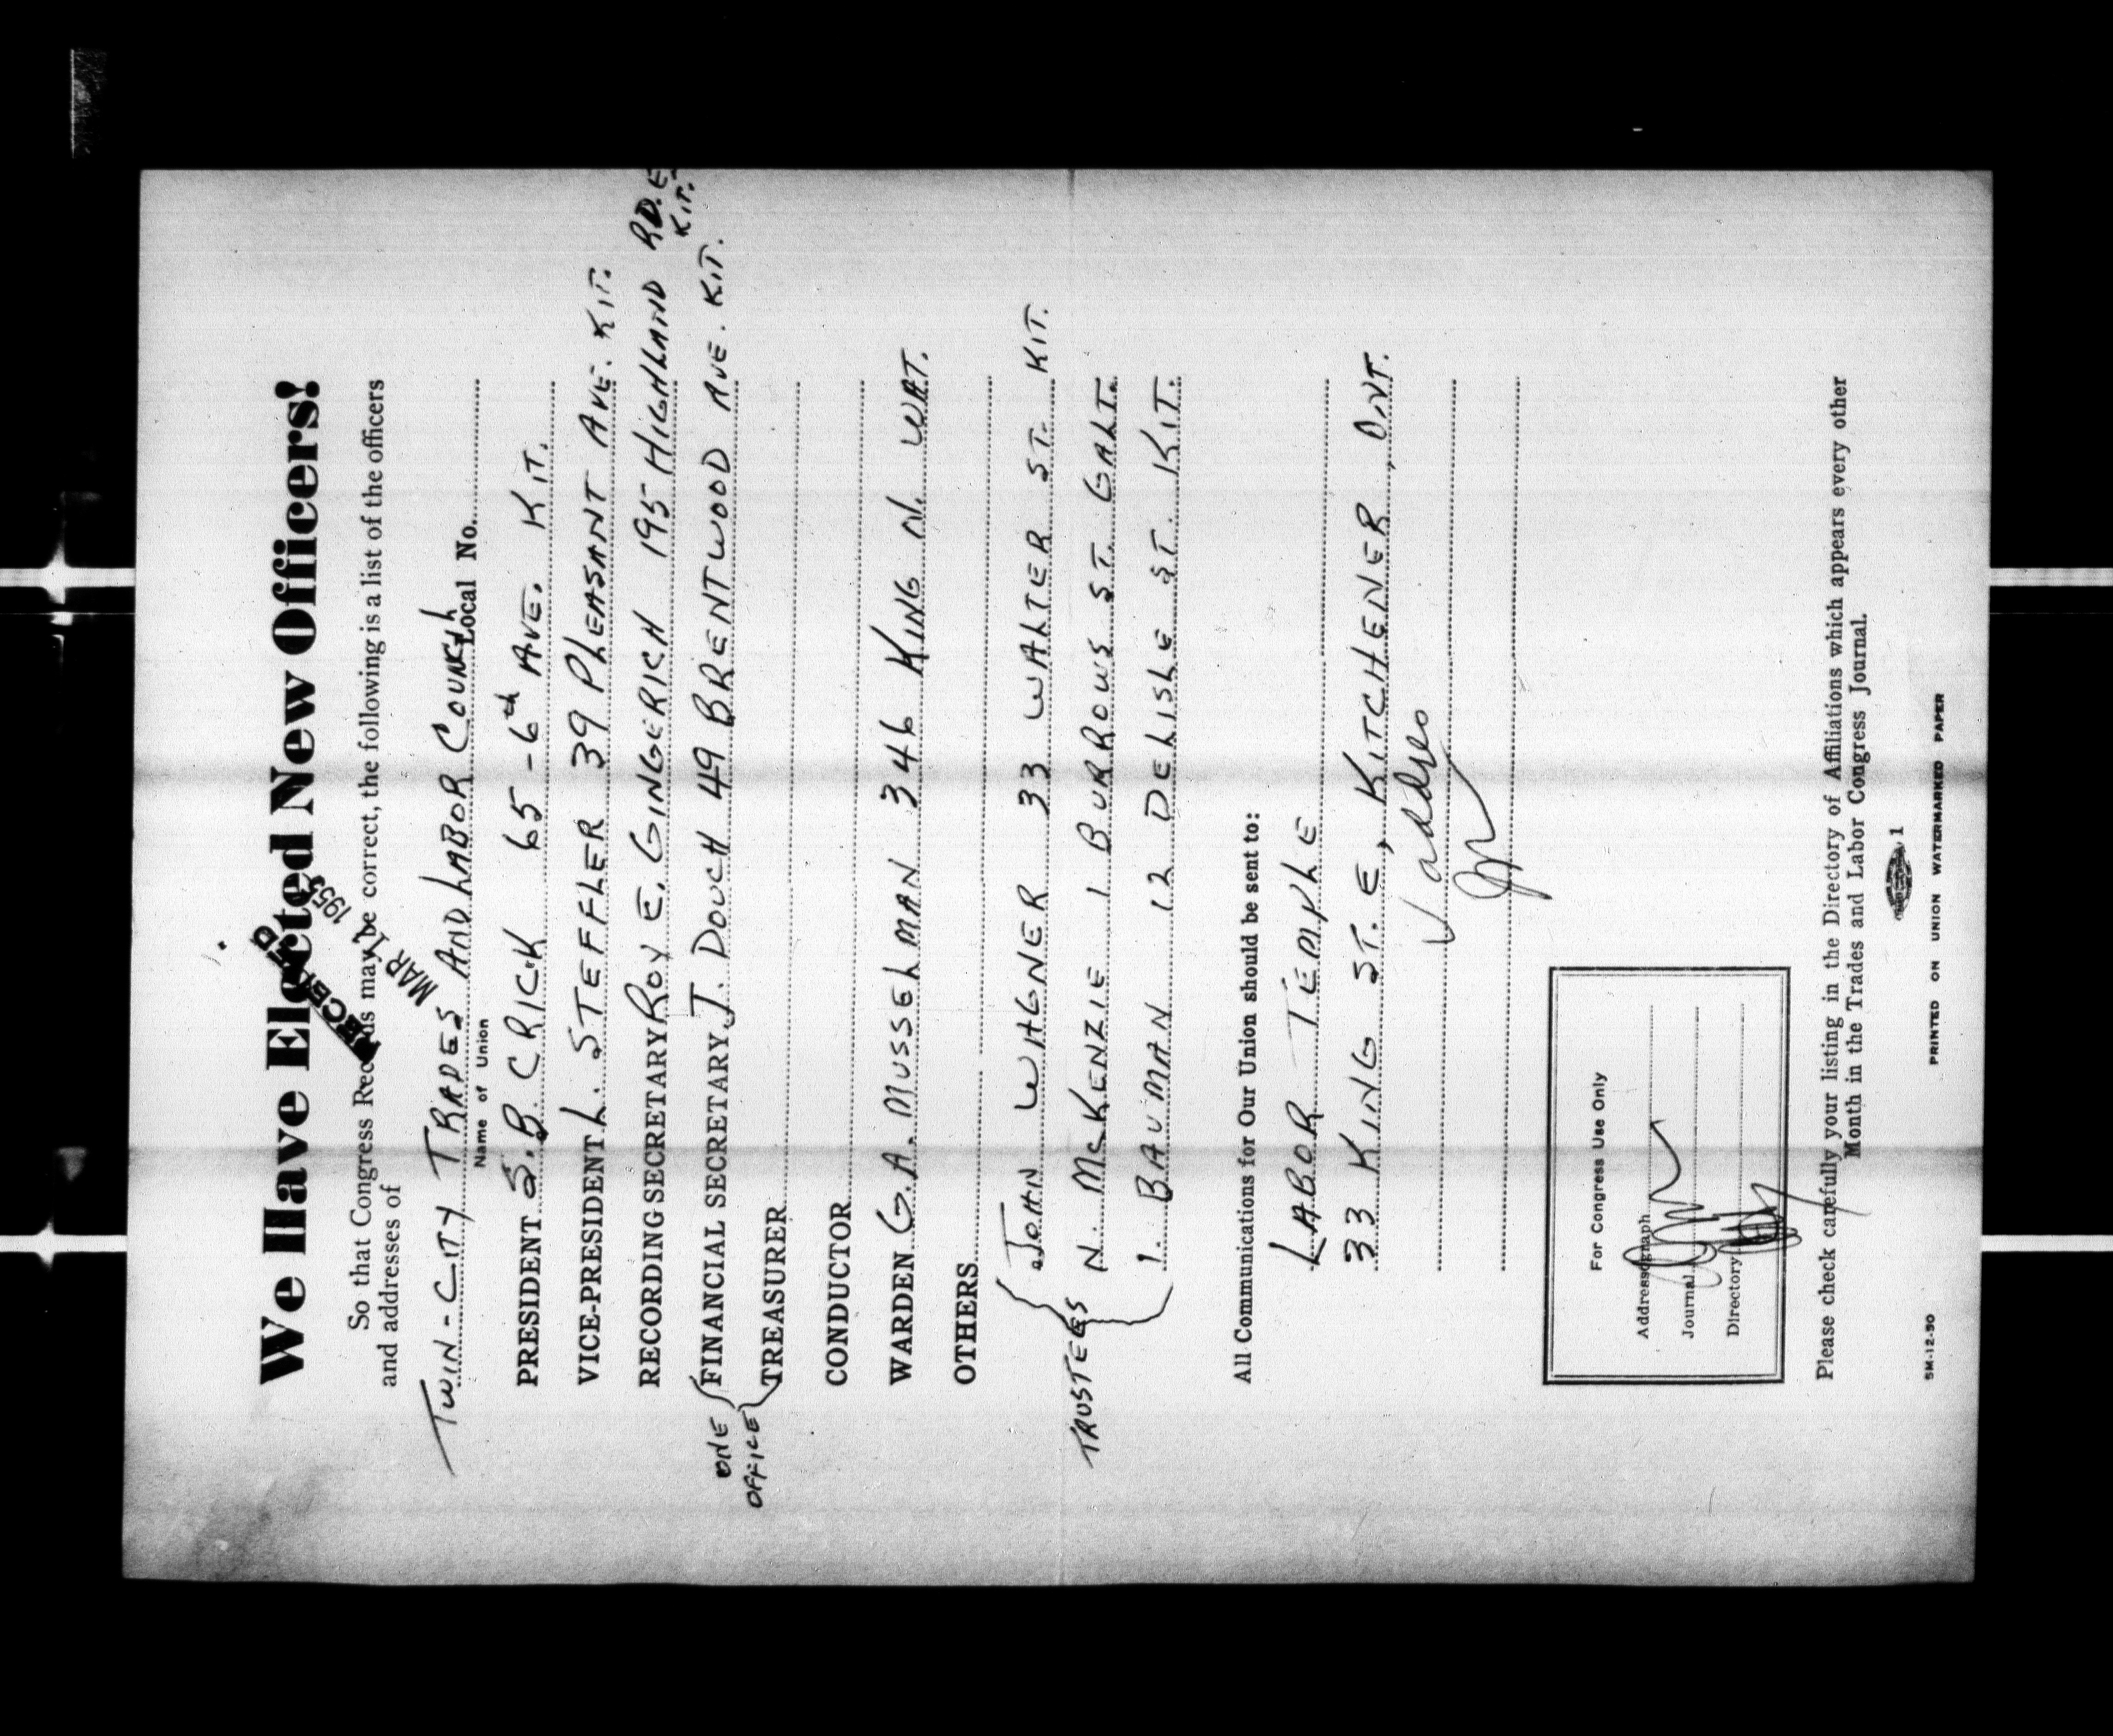 We Have Elected New Officers!
RECEIVED
MAR 1953
So that Congress Records may be correct, the following is a list of the officers
and addresses of
TWIN-CITY TRADES AND LABOR COUNCIL Local No.
Name of Union
PRESIDENT S.B. CRICK 65-6th AVE. KIT.
VICE-PRESIDENT L. STEFFLER 39 PLEASANT AVE. KIT.
RECORDING SECRETARY ROY E. GINGERICH 195 HIGHLAND RD. E. KIT.
ONE OFFICE { FINANCIAL SECRETARY J. DOUCH 49 BRENTWOOD AVE. KIT.
TREASURER
CONDUCTOR
WARDEN G.A. MUSSELMAN 346 KING N. WAT.
OTHERS
TRUSTEES { JOHN WAGNER 33 WALTER ST. KIT.
N. McKENZIE 1 BURROWS ST. GALT.
I. BAUMAN 12 DELISLE ST. KIT.
All Communications for Our Union should be sent to:
LABOR TEMPLE
33 KING ST. E, KITCHENER, ONT.
For Congress Use Only
Addressograph
Journal
Directory
Please check carefully your listing in the Directory of Affiliations which appears every other
Month in the Trades and Labor Congress Journal.
1
5M-12-50 PRINTED ON UNION WATERMARKED PAPER